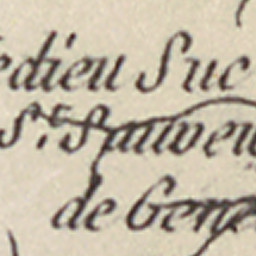 edieu Suc
St. Sauveu
de Gene